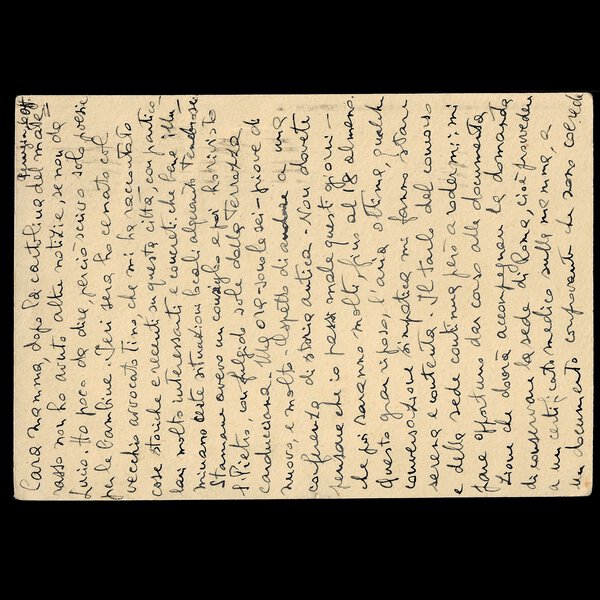 Cara mamma, dopo la cartolina del mate-
rasso non ho avuto altre notizie, se non da
Lucio. Ho poco da dire, perciò scrivo solo poesie
per le bambine. Ieri sera ho cenato col
vecchio avvocato Tino, che mi ha raccontato
cose storiche e recenti su questa città, con partico-
lari molto interessanti e concreti: che fare illu-
minano certe situazioni locali alquanto tenebrose.
Stamane avevo un consiglio e poi ho rivisto
S. Pietro, con fulgido sole dalla Terrazza
carducciana. Alle ora sono le sei - piove di
nuovo, e molto. Aspetto di andare a una
conferenza di storia antica. Non dovete
pensare che io passi male questi giorni -
che poi saranno molti, fino al 18 almeno.
Questo gran riposo, l'aria ottima, qualche
conversazione simpatica mi fanno stare
serena e contenta. Il tarlo del concorso
e della sede continua però a rodermi; mi
pare opportuno dar corso alla documenta
zione che dovrà accompagnare la domanda
di conservare la sede di Roma, cioè provvedere
a un certificato medico sulla mamma, a
un documento comprovante che sono